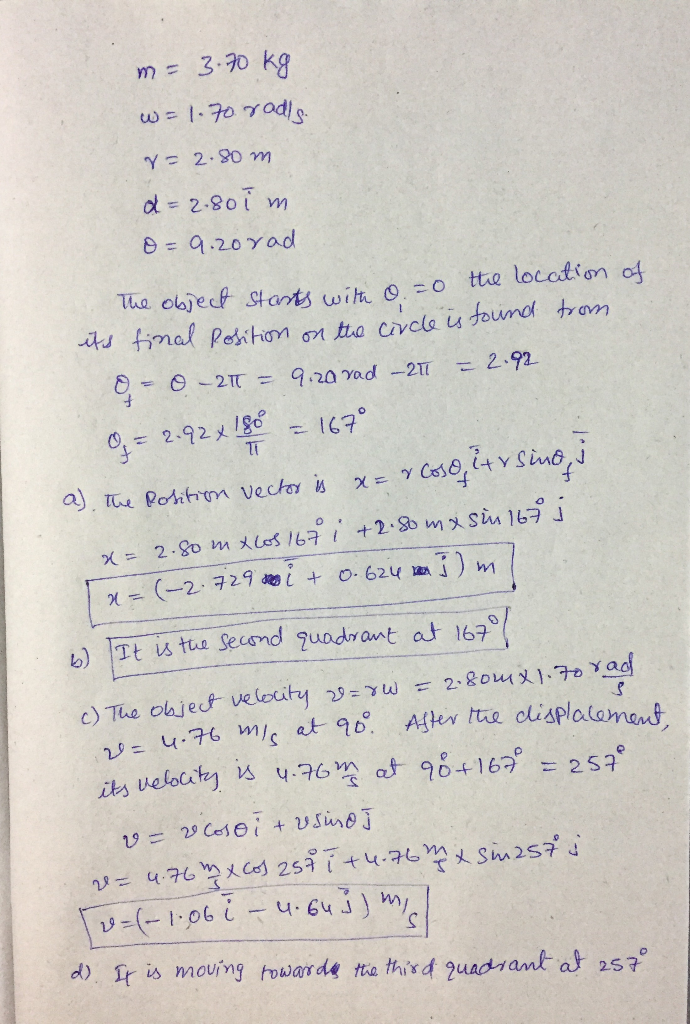 m = 3.70 kg
w = 1.70 rad/s.
r = 2.80 m
d = 2.80 i̅ m
θ = 9.20 rad
The object starts with θᵢ = 0 the location of
its final Position on the circle is found from
θf = θ - 2π = 9.20 rad - 2π = 2.92
θf = 2.92 x 180°/π = 167°
a). The Position vector is x = r cosθf i̅ + r sinθf j̅
x = 2.80 m x cos 167° i + 2.80 m x sin 167° j
x = (-2.729 i̅ + 0.624 j̅) m
b) It is the second quadrant at 167°
c) The object velocity v = rw = 2.80m x 1.70 rad/s
v = 4.76 m/s at 90°. After the displacement,
its velocity is 4.76 m/s at 90° + 167° = 257°
v = v cosθ i̅ + v sinθ j̅
v = 4.76 m/s x cos 257° i̅ + 4.76 m/s x sin 257° j
v = (-1.06 i̅ - 4.64 j̅) m/s
d). It is moving towards the third quadrant at 257°